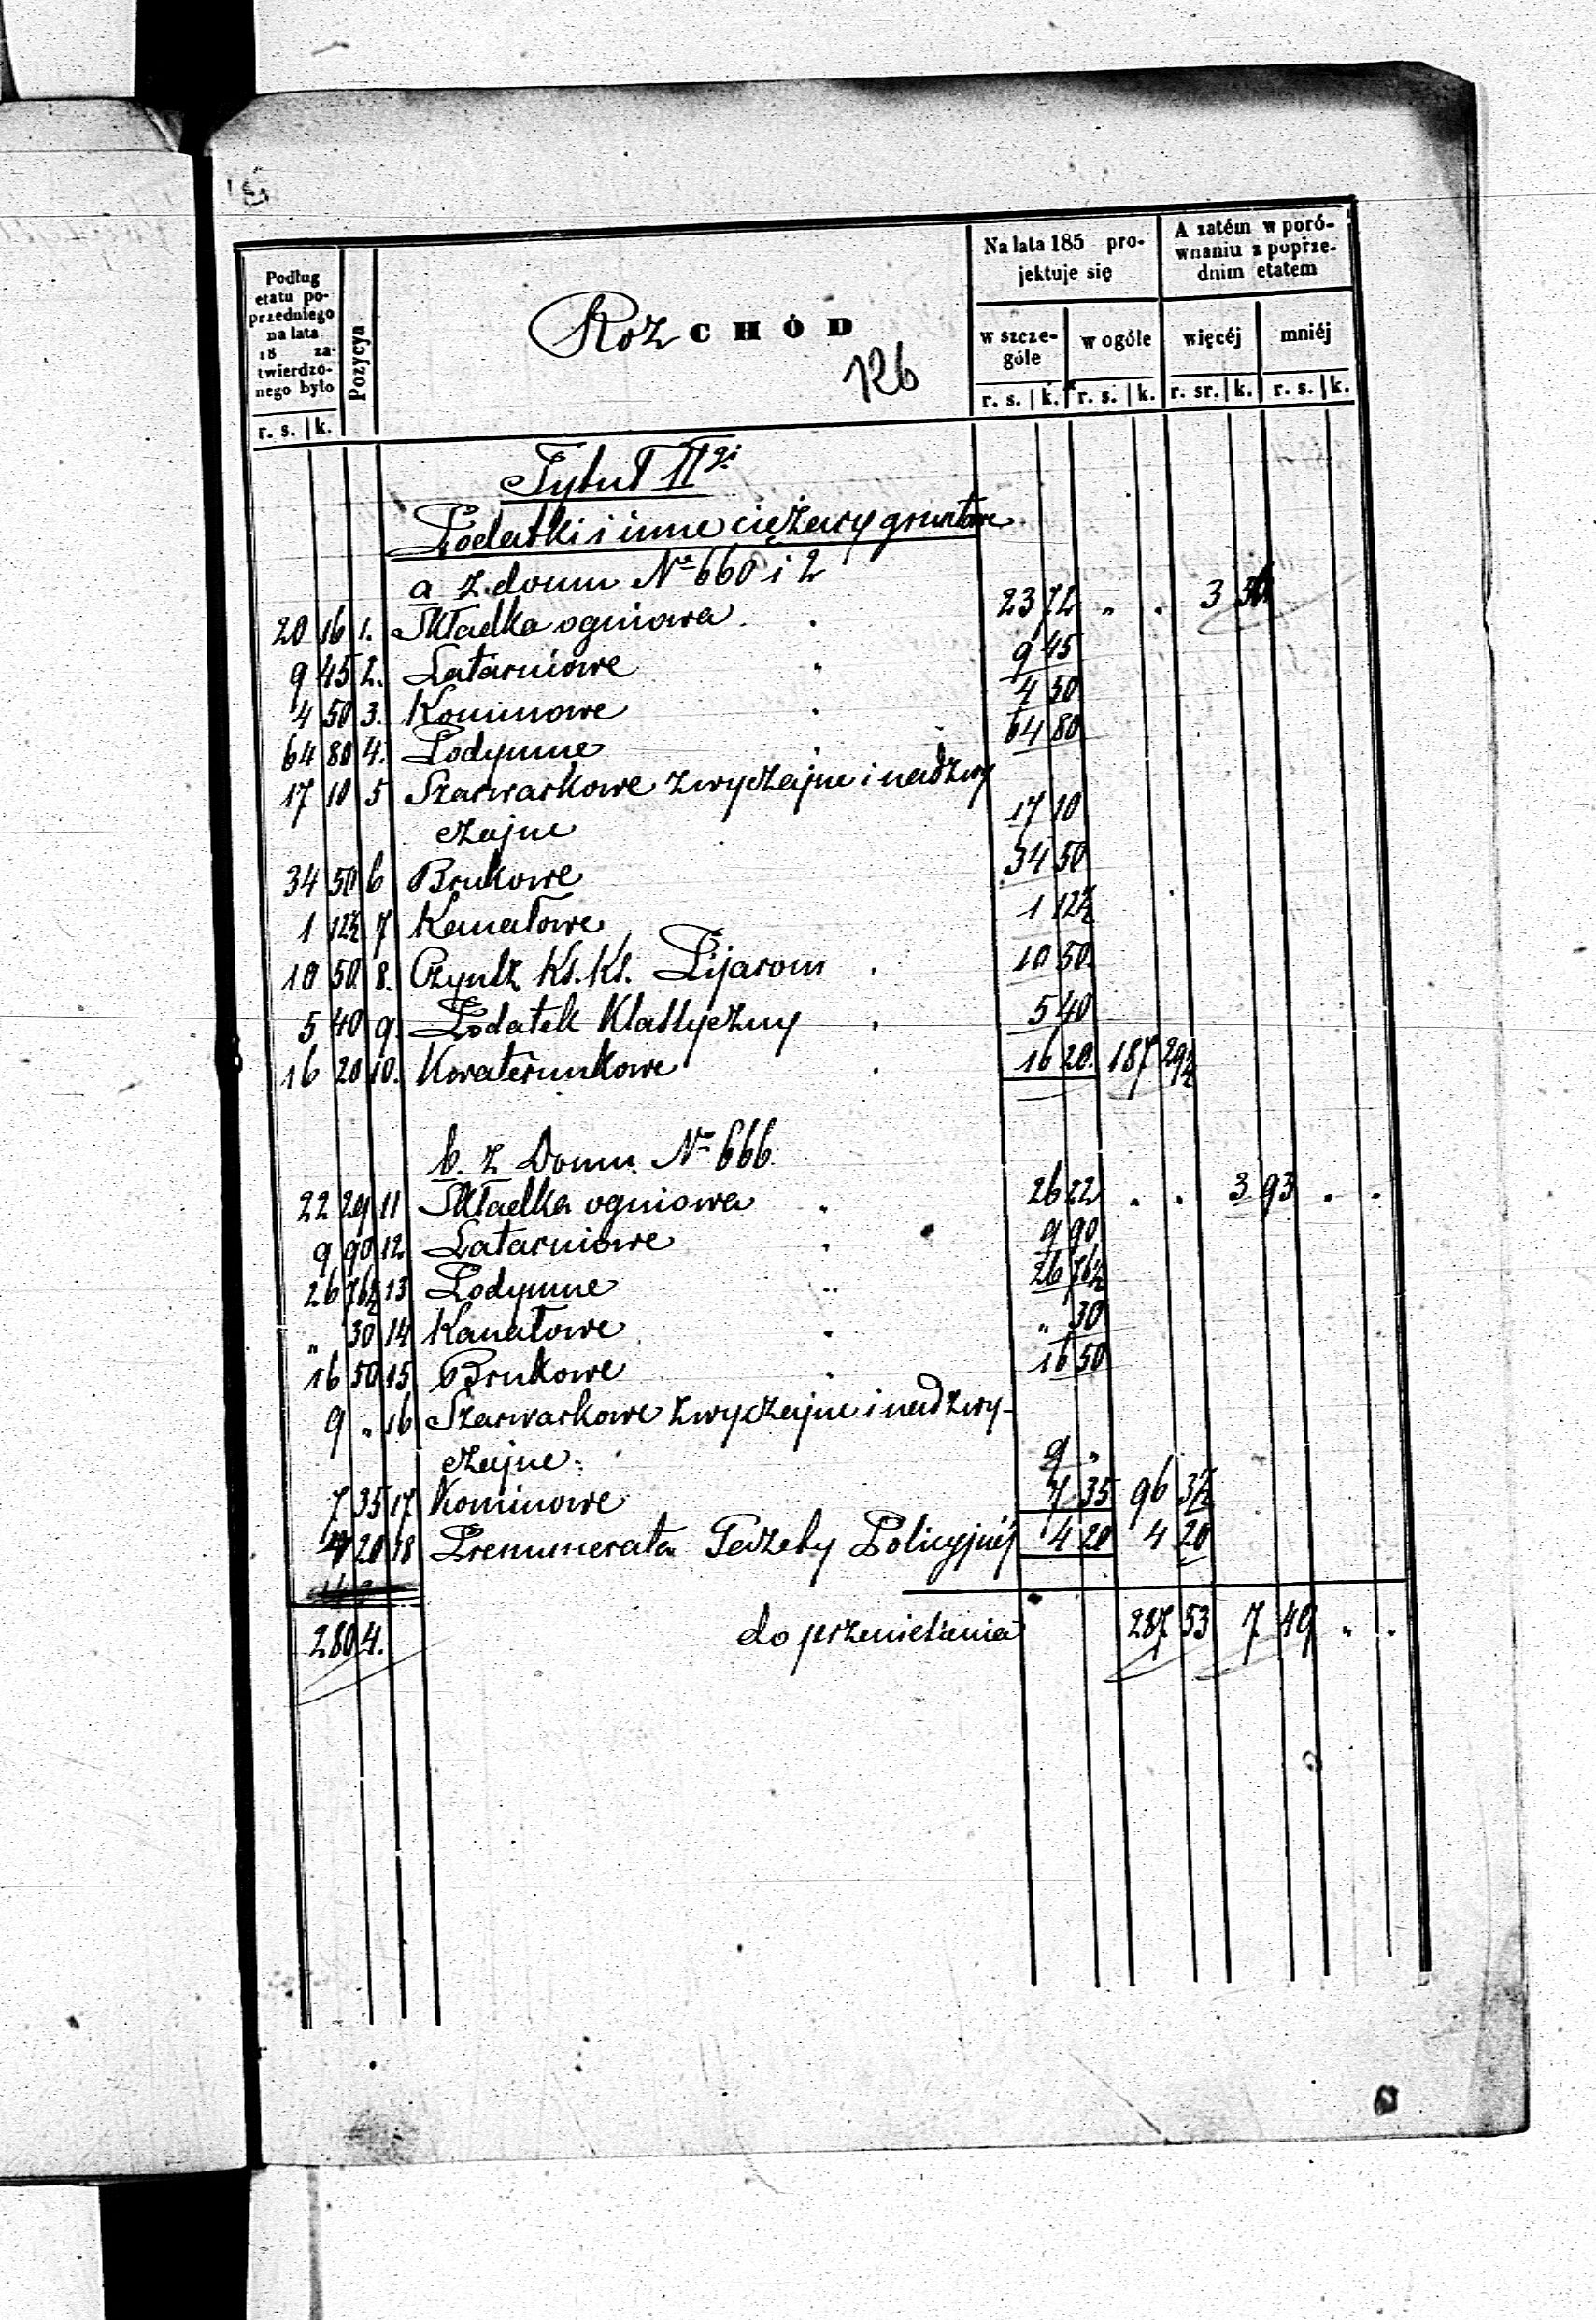 Podług etatu poprzedniego na lata 18 zatwierdzonego było
Pozycya
Roz CHÓD
126
Na lata 185 projektuje się
A zatém w porównaniu z poprzednim etatem
w szczególe
w ogóle
więcéj
mniéj
r. s. | k. r. s. | k. r. s. | k. r. sr. | k. r. s. | k.
Tytuł II gi
Podatki i inne ciężary gruntowe
a z domu № 660 i 2
20 16 1. Składka ogniowa . . 23 72 " . 3 56
9 45 2. Latarniowe . 9 45
4 50 3. Kominowe . 4 50
64 80 4. Podymne . 64 80
17 10 5 Szarwarkowe zwyczajne i nadzwy
czajne 17 10
34 50 6 Brukowe 34 50
1 12½ 7 Kanałowe 1 12½
10 50 8. Czynsz Ks. Ks. Pijarom . 10 50
5 40 9. Podatek Klassyczny . 5 40
16 20 10. Kwaterunkowe . 16 20. 187 29½
b. z Domu № 666
22 29 11 Składka ogniowa . 26 22 . . 3 93 . .
9 90 12 Latarniowe . 9 90
26 76½ 13 Podymne .. 26 76½
" 30 14 Kanałowe . " 30
16 50 15 Brukowe . 16 50
9 " 16 Szarwarkowe zwyczajne i nadzwy-
czajne: 9 "
7 35 17 Kominowe 7 35 96 3½
4 20 18 Prenumerata Gazety Policyjnéj 4 20 4 20
280 4. do przeniesienia 287 53 7 49 " "